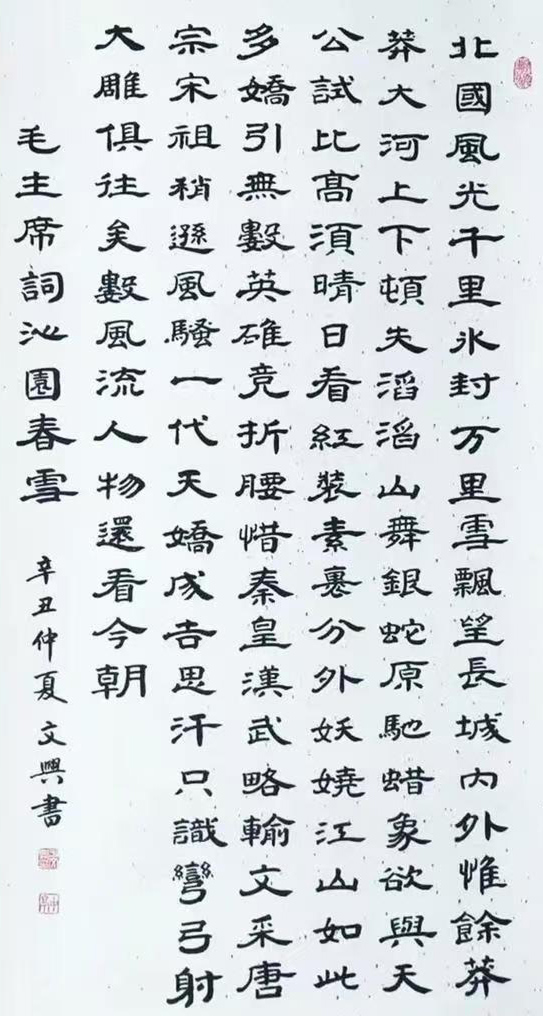 北國風光千里氷封万里雪飄望長城内外惟餘莽
莽大河上下頓失滔滔山舞銀蛇原馳蜡象欲與天
公試比髙須晴日看紅裝素裹分外妖嬈江山如此
多嬌引無數英雄竞折腰惜秦皇漢武略輸文采唐
宗宋祖稍遜風騷一代天嬌成吉思汗只識彎弓射
大雕俱往矣數風流人物還看今朝
毛主席詞沁園春雪 辛丑仲夏文興書